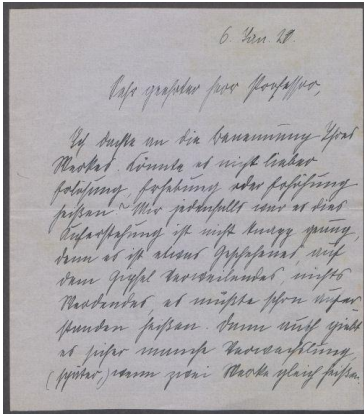 6. Jan. 20.
Sehr geehrter Herr Professor,
Ich dachte an die Benennung Ihres
Werkes. Könnte es nicht lieber
Erlösung, Erhebung oder Erhöhung
heißen? Mir jedenfalls war es dies
Auferstehung ist nicht knapp genug
denn es ist etwas Geschehenes, auf
dem Gipfel Verweilendes nichts
Werdendes, es müßte schon aufer-
standen heißen. Dann auch giebt
es sicher manche Verwechslung
(später,) wenn zwei Werke gleich heißen.